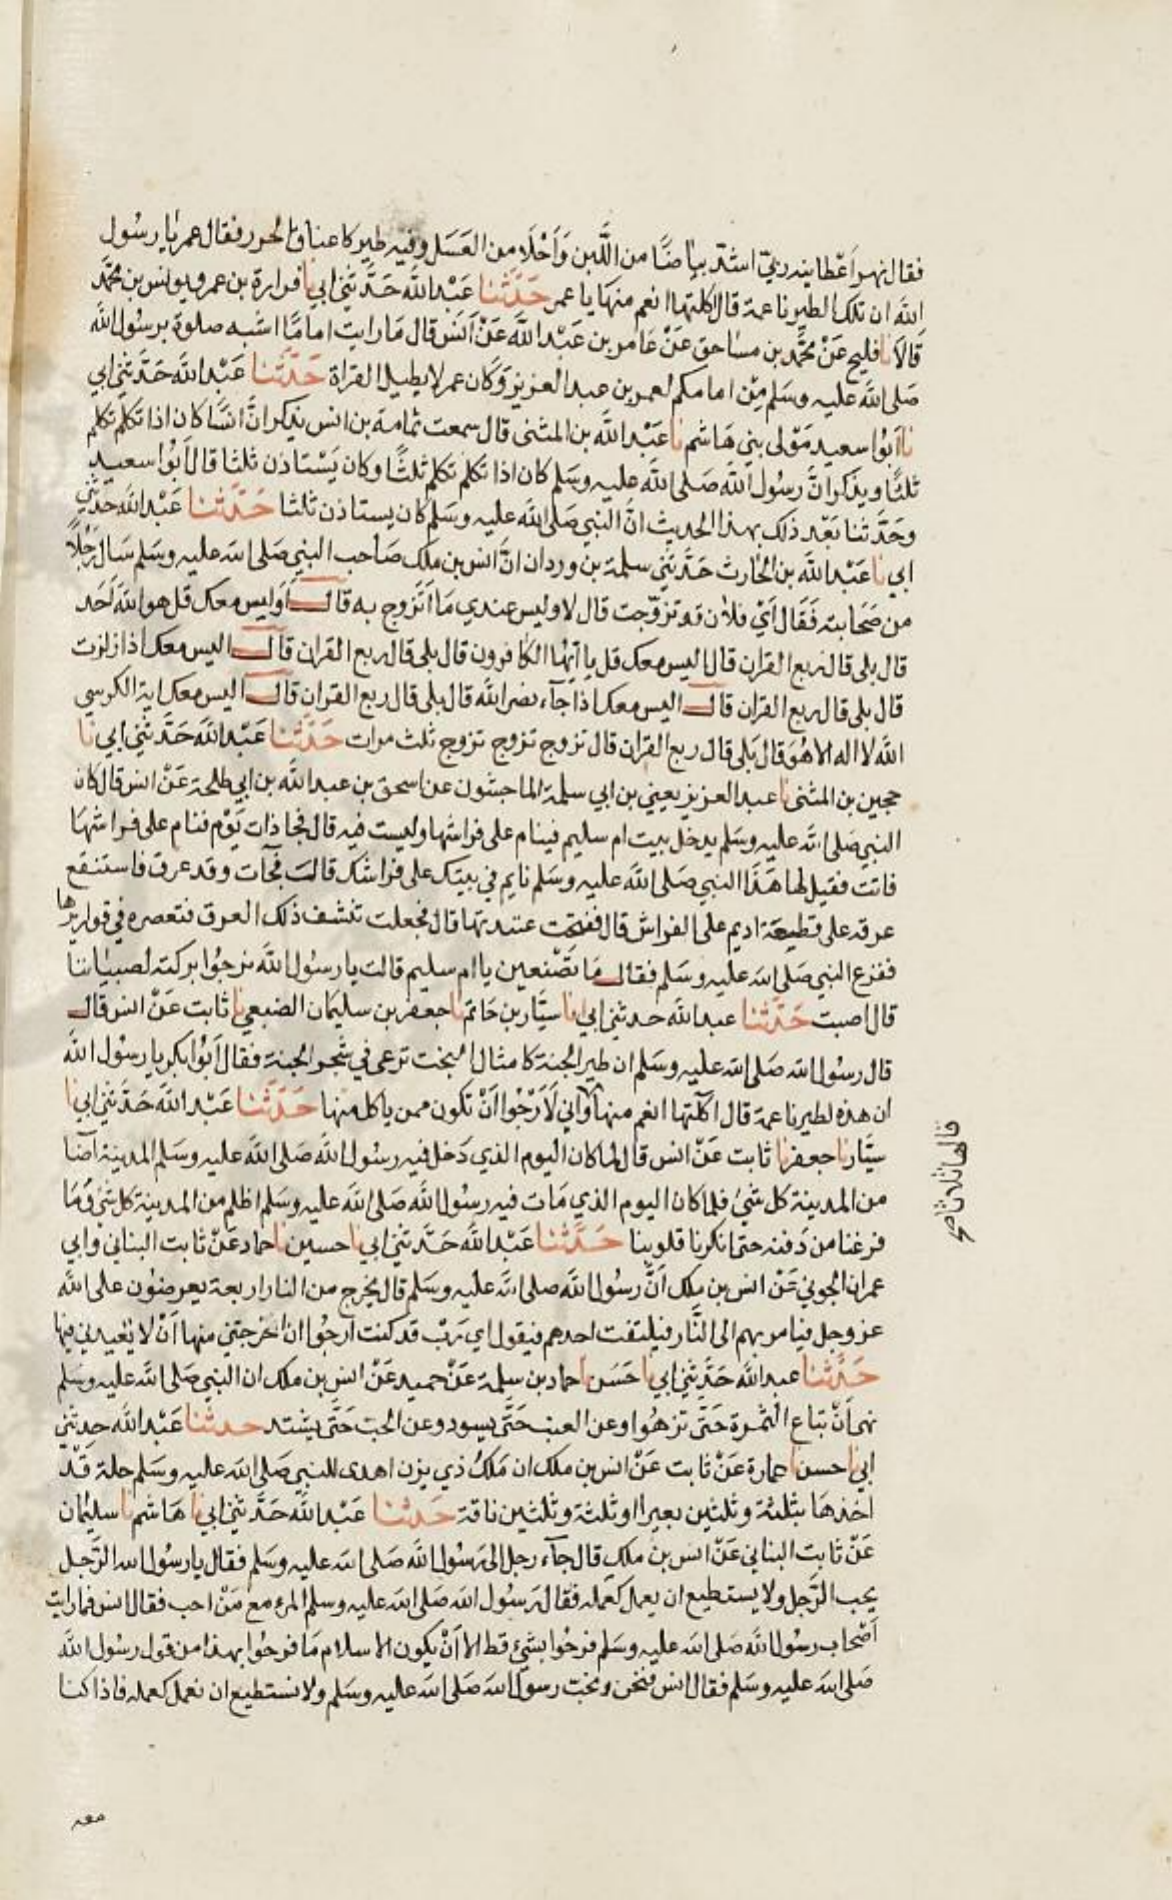 فقال نهر اعطانيه ربي اشد بياضا من اللبن واحلا من العسل وفيه طير كاعناق الحور فقال عمر يا رسول
الله ان تلك الطير ناعمة قال اكلتها انعم منها يا عمر حدثنا عبد الله حدثني ابي نا فزارة بن عمرو ويونس بن محمد
قالا نا فليح عن محمد بن مساحق عن عامر بن عبد الله عن انس قال ما رايت اماما اشبه صلوة برسول الله
صلى الله عليه وسلم من امامكم لعمر بن عبد العزيز وكان عمر لا يطيل القراة حدثنا عبد الله حدثني ابي
نا ابوا سعيد مولى بني هاشم نا عبد الله بن المثنى قال سمعت ثمامة بن انس يذكر ان انسا كان اذا تكلم تكلم
ثلثا ويذكر ان رسول الله صلى الله عليه وسلم كان اذا تكلم تكلم ثلثا وكان يستاذن ثلثا قال ابوا سعيد
وحدثنا بعد ذلك بهذا الحديث ان النبي صلى الله عليه وسلم كان يستاذن ثلثا حدثنا عبد الله حدثني
ابي نا عبد الله بن الحارث حدثني سلمة بن وردان ان انس بن ملك صاحب النبي صلى الله عليه وسلم سال رجلا
من صحابته فقال اي فلان قد تزوجت قال لا وليس عندي ما اتزوج به قال اوليس معك قل هو الله احد
قال بلى قال ربع القران قال اليس معك قل يا ايها الكافرون قال بلى قال ربع القران قال اليس معك اذا زلزلت
قال بلى قال ربع القران قال اليس معك اذا جاء نصر الله قال بلى قال ربع القران قال اليس معك اية الكرسي
الله لا اله الا هو قال بلى قال ربع القران قال تزوج تزوج تزوج ثلث مرات حدثنا عبد الله حدثني ابي نا
حجين بن المثنى نا عبد العزيز يعني بن ابي سلمة الماجشون عن اسحق بن عبد الله بن ابي طلحة عن انس قال كان
النبي صلى الله عليه وسلم يدخل بيت ام سليم فينام على فراشها وليست فيه قال فجا ذات يوم فنام على فراشها
فاتت فقيل لها هذا النبي صلى الله عليه وسلم نايم في بيتك على فراشك قالت فجآت وقد عرق فاستنقع
عرقه على قطيعة اديم على الفراش قال ففتحت عتيدتها قال فجعلت تنشف ذلك العرق فتعصره في قواريرها
ففزع النبي صلى الله عليه وسلم فقال ما تصنعين يا ام سليم قالت يا رسول الله نرجوا بركته لصبياننا
قال اصبت حدثنا عبد الله حدثني ابي نا سيار بن حاتم نا جعفر بن سليمان الضبعي نا ثابت عن انس قال
قال رسول الله صلى الله عليه وسلم ان طير الجنة كامثال البخت ترعى في شجر الجنة فقال ابوا بكر يا رسول الله
ان هذه لطير ناعمة قال اكلتها انعم منها واني لارجوا ان تكون ممن ياكل منها حدثنا عبد الله حدثني ابي نا
سيار نا جعفر نا ثابت عن انس قال لما كان اليوم الذي دخل فيه رسول الله صلى الله عليه وسلم المدينة اضا
من المدينة كل شيء فلما كان اليوم الذي مات فيه رسول الله صلى الله عليه وسلم اظلم من المدينة كل شيء وما
فرغنا من دفنه حتى انكرنا قلوبنا حدثنا عبد الله حدثني ابي نا حسين نا حماد عن ثابت البناني وابي
عمران الجوني عن انس بن ملك ان رسول الله صلى الله عليه وسلم قال يخرج من النار اربعة يعرضون على الله
عز وجل فيامر بهم الى النار فيلتفت احدهم فيقول اي رب قد كنت ارجوا ان اخرجتني منها ان لا تعيدني فيها
حدثنا عبد الله حدثني ابي نا حسن نا حماد بن سلمة عن حميد عن انس بن ملك ان النبي صلى الله عليه وسلم
نهى ان تباع الثمرة حتى تزهوا وعن العنب حتى يسود وعن الحب حتى يشتد حدثنا عبد الله حدثني
ابي نا حسن نا عمارة عن ثابت عن انس بن ملك ان ملك ذي يزن اهدى للنبي صلى الله عليه وسلم حلة قد
اخذها بثلثة وثلثين بعيرا او ثلثة وثلثين ناقة حدثنا عبد الله حدثني ابي نا هاشم نا سليمان
عن ثابت البناني عن انس بن ملك قال جاء رجل الى رسول الله صلى الله عليه وسلم فقال يا رسول الله الرجل
يحب الرجل ولا يستطيع ان يعمل كعمله فقال رسول الله صلى الله عليه وسلم المرء مع من احب فقال انس فما رايت
اصحاب رسول الله صلى الله عليه وسلم فرحوا بشيء قط الا ان يكون الاسلام ما فرحوا بهذا من قول رسول الله
صلى الله عليه وسلم فقال انس فنحن نحب رسول الله صلى الله عليه وسلم ولا نستطيع ان نعمل كعمله فاذا كنا
معه
قالها ثلاثا صح